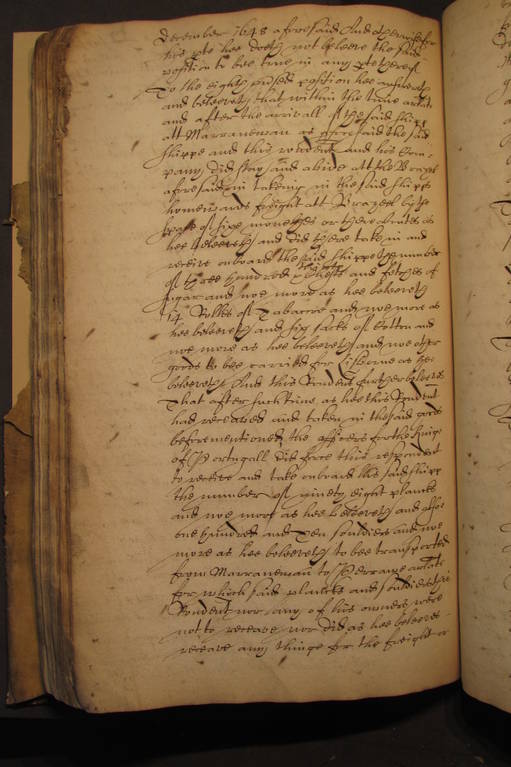 december 1648 aforesaid And otherwise for
his pte hee doeth not beleeve the said
position to bee true in any pte thereof
To the eighth position hee answereth
and beleeveth that within the time arlate
and after the arrivall of the said shipp
att Marranewan as aforesaid the said
shippe and this rondent and his Com-
pany did stay and abide att the Brazeel
aforesaid in takeing in the said shipps
homewards freight att Brazeel by the
space of sixe moneths or thereabouts as
hee beleeveth and did there take in and
receive onboard the said shippe the number
of three hundred Chests and fetches of
sugar and noe more as hee beleeveth
14 Rolles of Tabaccoe and noe more as
hee beleeveth and six sacks of Cotten and
noe more as hee beleeveth and noe other
goods to bee carried for Lisborne as hee
beleeveth And this Rondent further beleeveth
That after such time as hee this Rondent
had receaved and taken in the said goods
beforementioned the officers for the Kinge
of Portugall did force this respondent
to receive and take onboard the said shipp
the number of ninety eight planks
and noe more as hee beleeveth and alsoe
one hundred and Ten souldiers and noe
more as hee beleeveth to bee transported
from Marranewan to arlate
for which said plancks and souldiers this
Rondent nor any of his owners were
not to receave nor did as hee beleeves
receave any thinge for the freight or